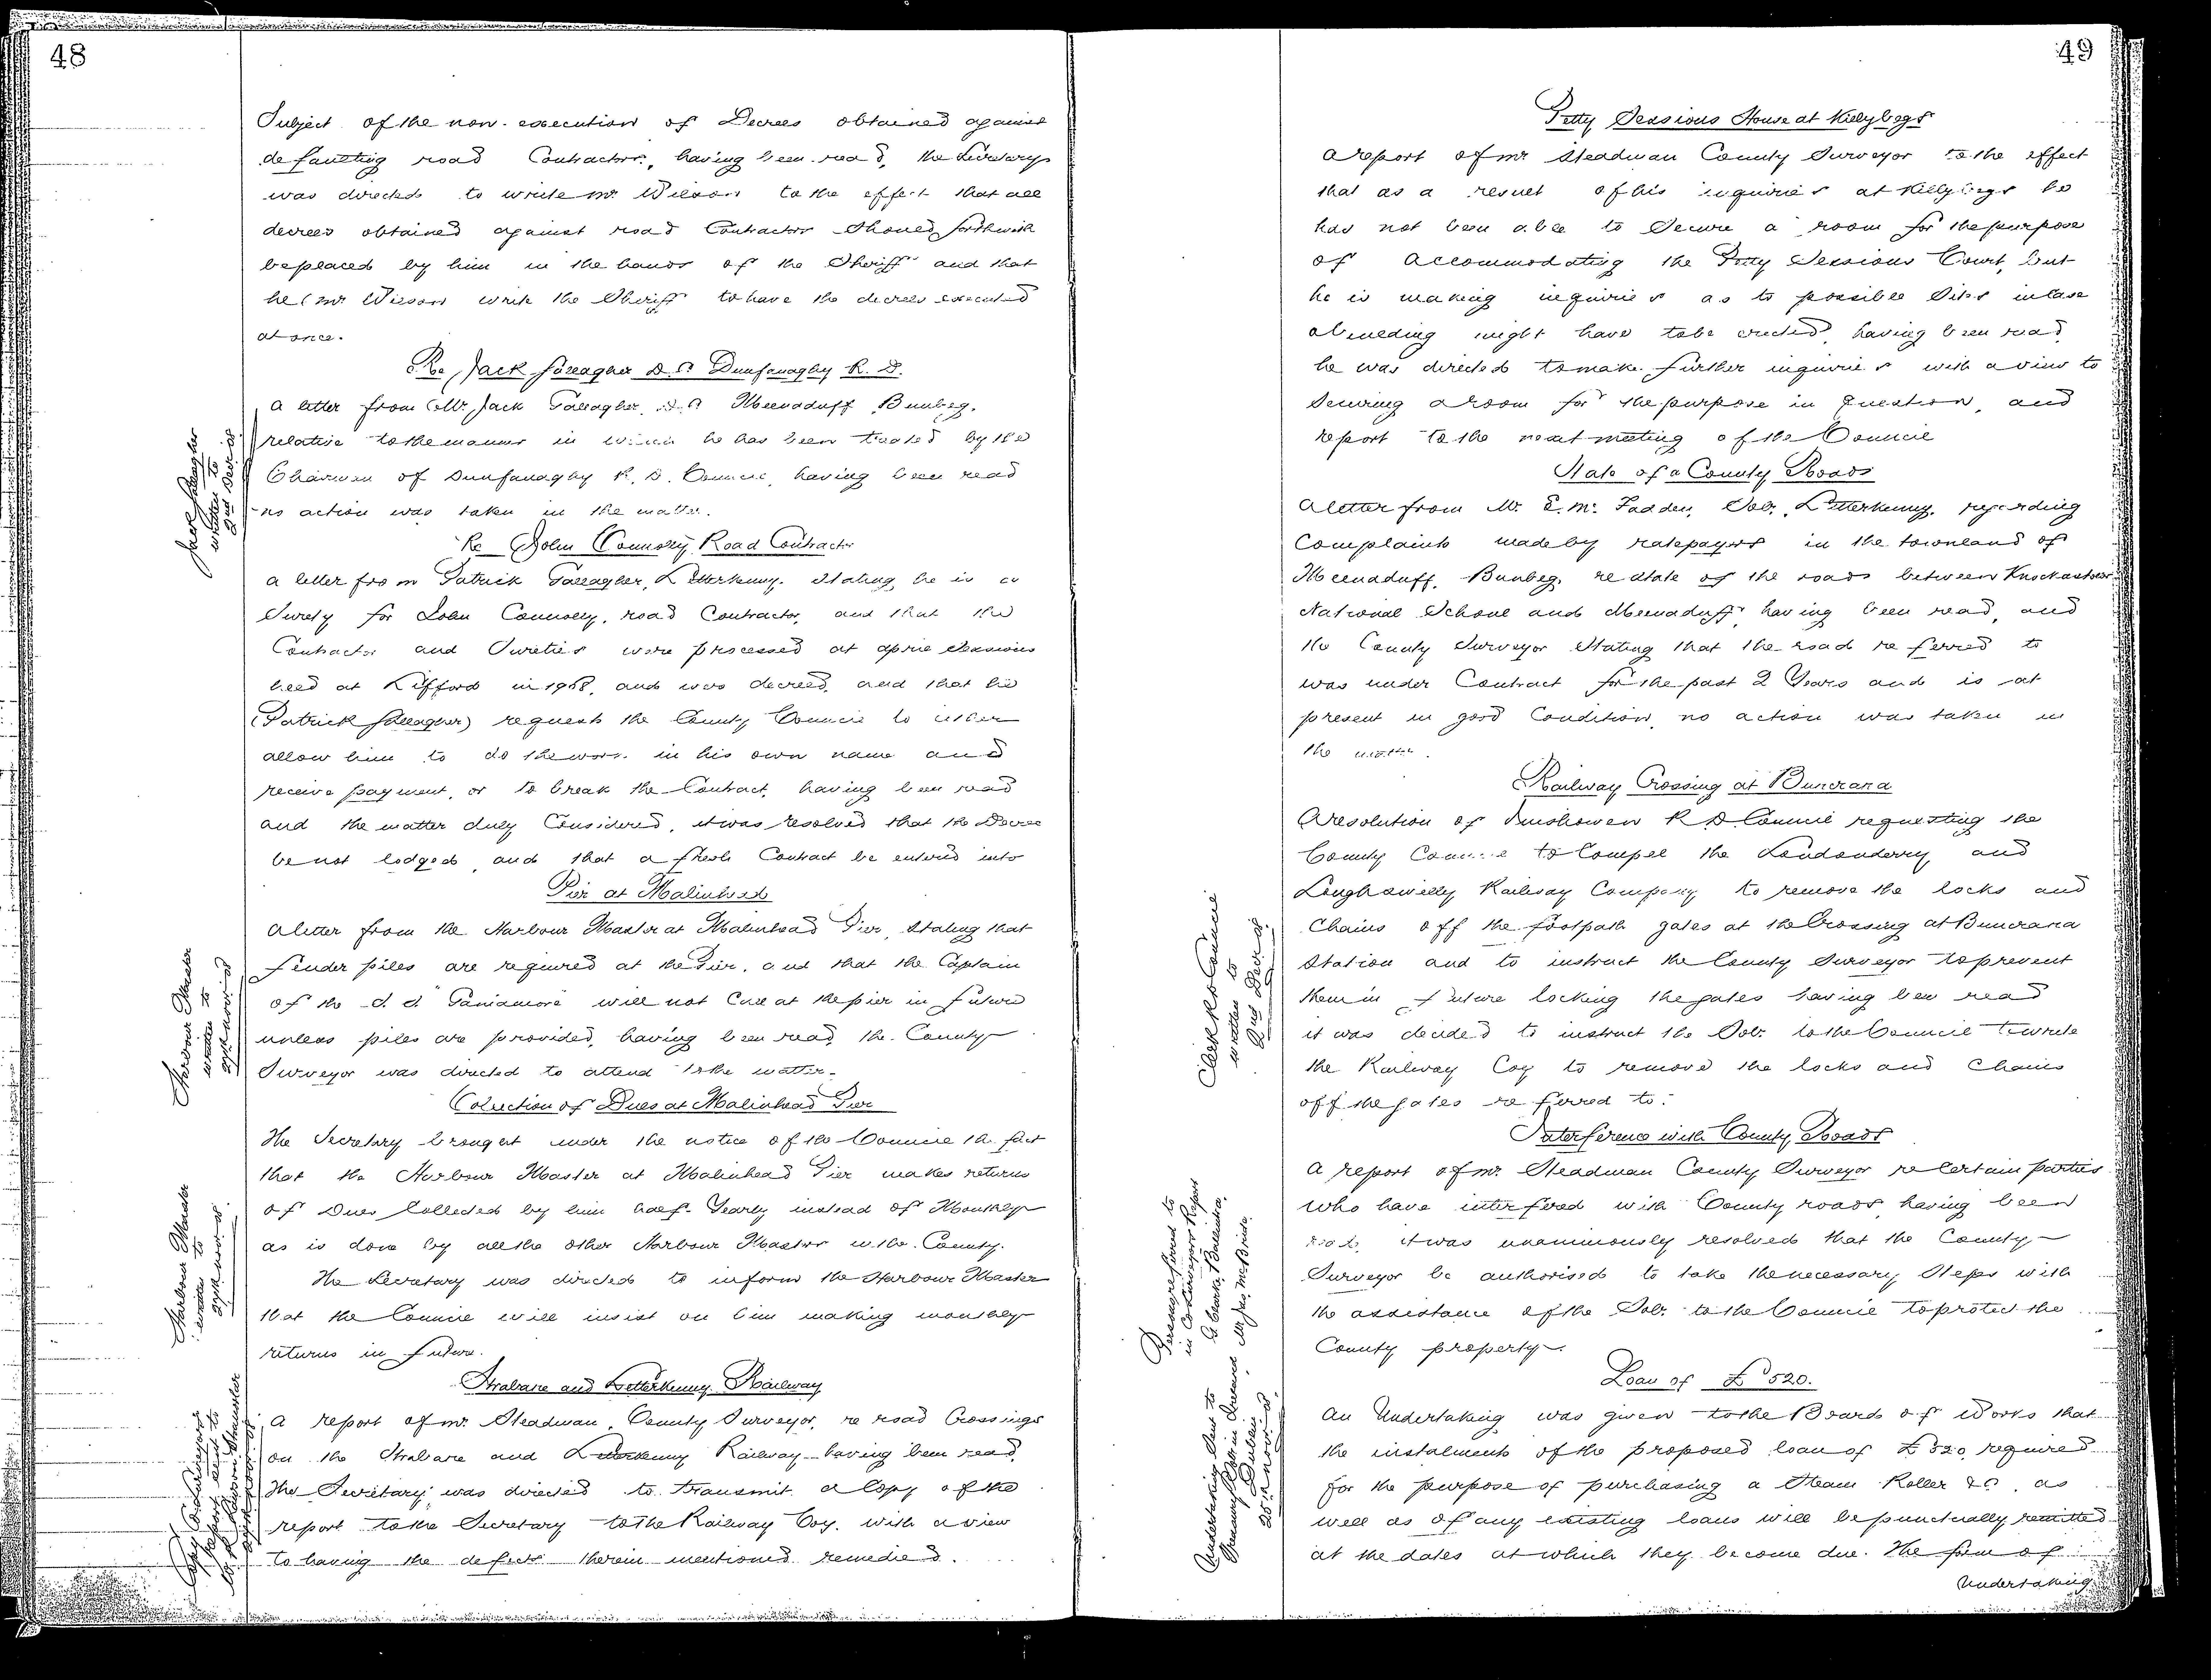 48
Subject of the non-execution of Decrees obtained against
defaulting road Contractors, having been read, the Secretary
was directed to write Mr. Wilson to the effect that all
decrees obtained against road Contractors should forthwith
be placed by him in the hands of the Sheriff and that
he (Mr Wilson) write the Sheriff to have the decrees executed
at once.
Re Jack Gallagher D.C. Dunfanaghy R.D.
A letter from Mr. Jack Gallagher, D.C. Meenaduff Bunbeg.
relative to the manner in which he has been treated by the
Chairman of Dunfanaghy R.D. Council, having been read
no action was taken in the matter.
Jack Gallagher
written to
Re John Connolly Road Contractor
A letter from Patrick Gallagher, Letterkenny. Stating he is a
Surety for John Connolly, road Contractor, and that the
Contractor and Sureties were processed at April Sessions
held at Lifford in 1908, and was decreed, and that he
(Patrick Gallagher) requests the County Council to either
allow him to do the work in his own name and
receive payment, or to break the Contract, having been read
and the matter duly Considered, it was resolved that the Decree
be not lodged and that a fresh Contract be entered into
Pier at Malinhead
A letter from the Harbour Master at Malinhead Pier, Stating that
Fender piles are required at the Pier, and that the Captain
of the S.S. Taniamore will not Call at the pier in future
unless piles are provided, having been read, the County
Surveyor was directed to attend to the matter.
Harbour Master
written to
Collection of Dues at Malinhead Pier
The Secretary brought under the notice of the Council the fact
that the Harbour Master at Malinhead Pier makes returns
of Dues Collected by him half-Yearly instead of Monthly
as is done by all the other Harbour Masters in the County.
The Secretary was directed to inform the Harbour Master
that the Council will insist on him making monthly
returns in future.
Harbour Master
written to
Strabane and Letterkenny Railway
A report of Mr. Steadman, County Surveyor, re road Crossings
on the Strabane and Letterkenny Railway having been read,
The Secretary was directed to transmit a Copy of the
report to the Secretary to the Railway Coy. with a view
to having the defects therein mentioned remedied.
49
Petty Sessions House at Killybegs
A report of Mr Steadman County Surveyor to the effect
that as a result of his inquiries at Killybegs he
has not been able to Secure a room for the purpose
of Accommodating the Petty Sessions Court, but
he is making inquiries as to possible Sites in Case
a building might have to be erected, having been read,
he was directed to make further inquiries with a view to
Securing a room for the purpose in question, and
report to the next meeting of the Council
State of a County Road
A letter from Mr. E. McFadden, Solr. Letterkenny, regarding
Complaints made by ratepayers in the townland of
Meenaduff, Bunbeg, re state of the road between Knockastolar
National School and Meenaduff having been read, and
the County Surveyor Stating that the road referred to
was under Contract for the past 2 Years and is at
present in good Condition, no action was taken in
the matter.
Railway Crossing at Buncrana
A resolution of Inishowen R D Council requesting the
County Council to Compel the Londonderry and
Lough Swilly Railway Company to remove the locks and
Chains off the footpath gates at the Crossing at Buncrana
Station and to instruct the County Surveyor to prevent
them in future locking the gates having been read
it was decided to instruct the Solr. to the Council to write
the Railway Coy to remove the locks and Chains
off the gates referred to.
Clerk R D Council
written to
Interference with County Roads
A report of Mr. Steadman County Surveyor re Certain parties
who have interfered with County roads having been
read, it was unanimously resolved that the County
Surveyor be authorised to take the necessary Steps with
the assistance of the Solr. to the Council to protect the
County property.
Loan of £520.
An Undertaking was given to the Board of Works that
the instalments of the proposed loan of £520 required
for the purpose of purchasing a Steam Roller &c, as
well as of any existing loans will be punctually remitted
at the dates at which they become due. The form of
Undertaking